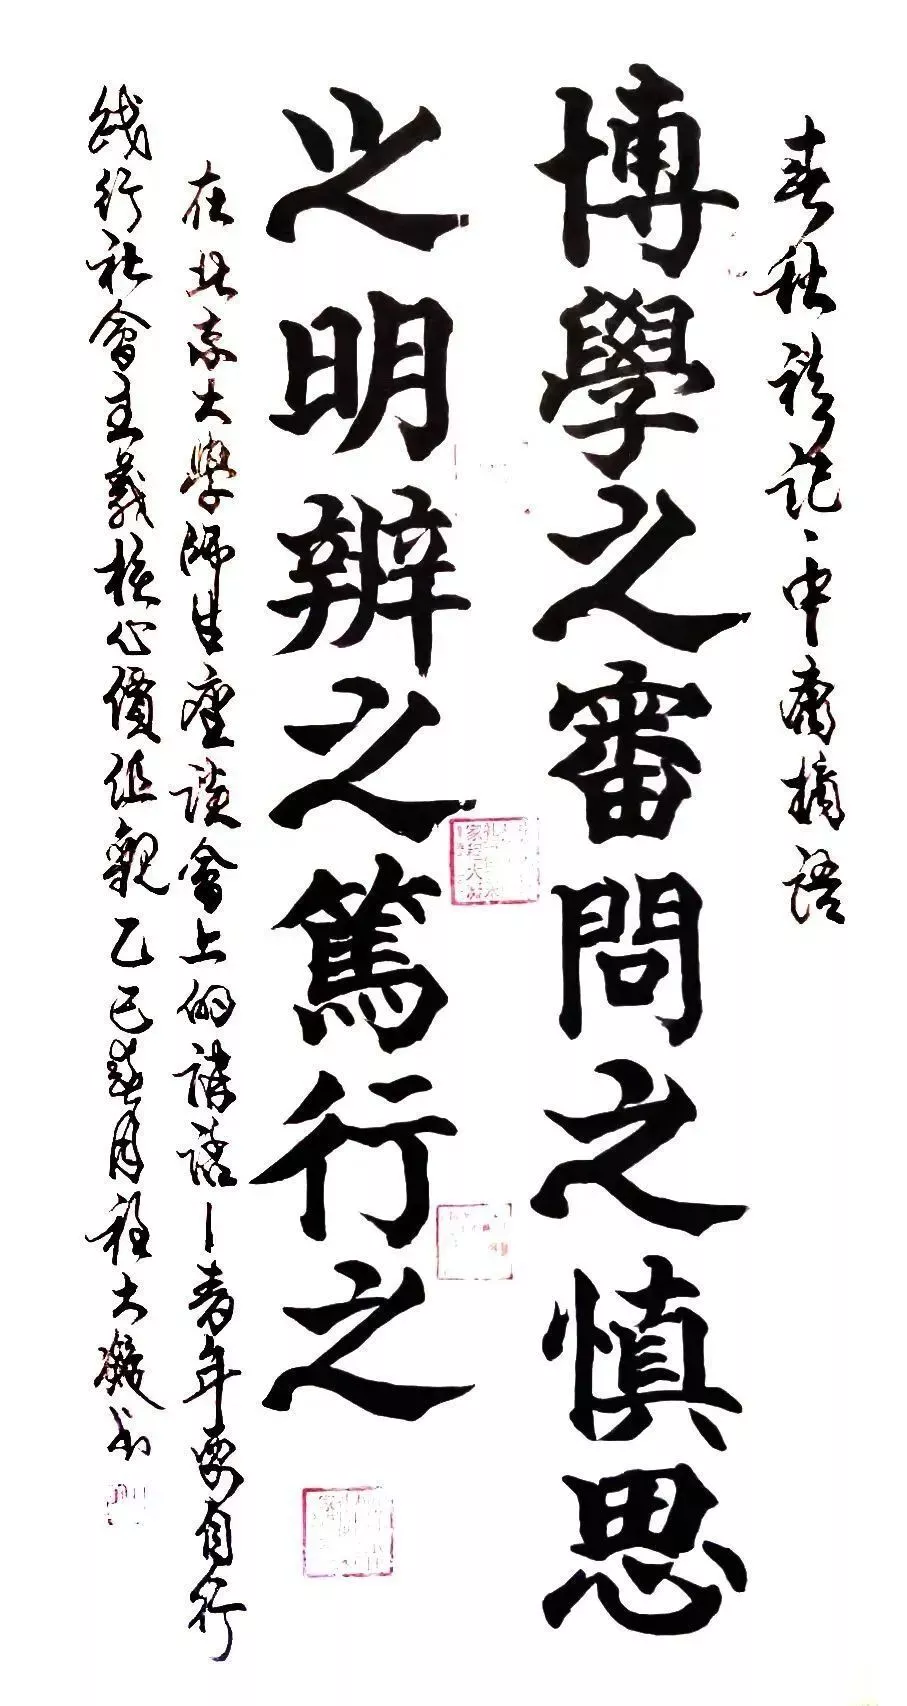 春秋禮記、中庸摘語
博學之審問之慎思
之明辨之篤行之
在北京大學師生座談會上的講話—青年要自行
踐行社會主義核心價值觀乙巳春月程大凝书